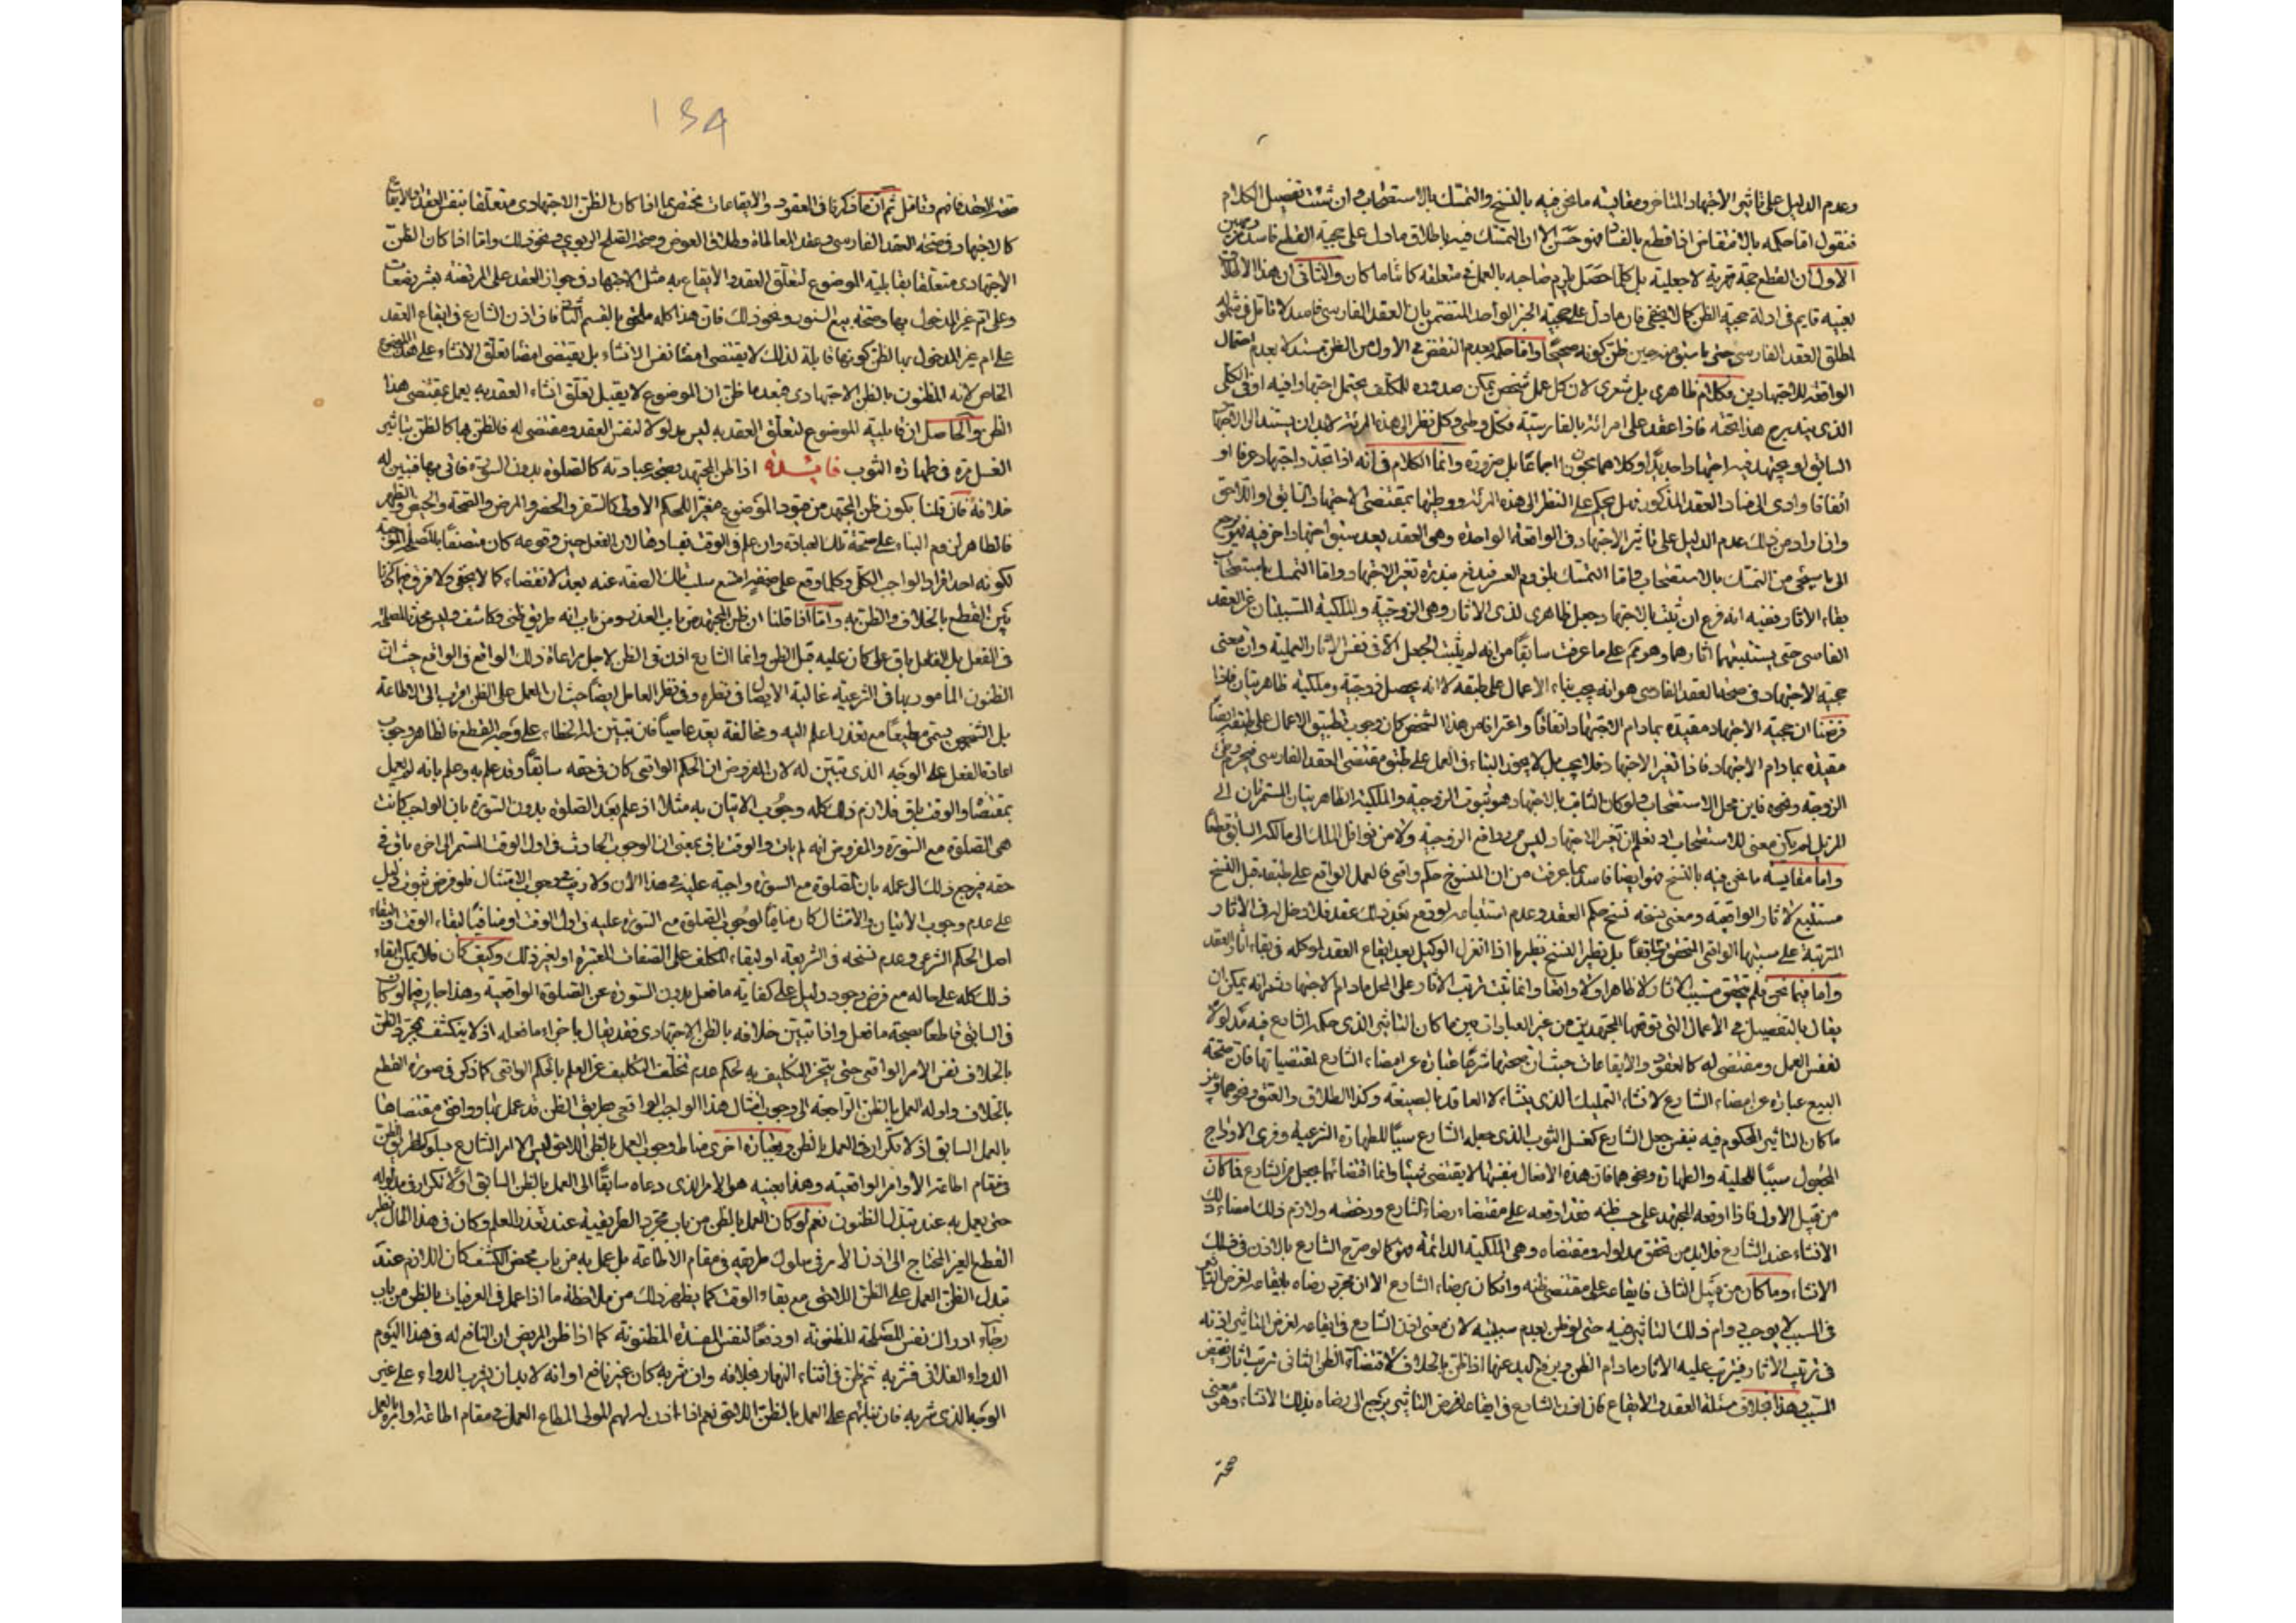 وعدم الدليل على تاثير الاجتهاد المتاخر ومقايسة ما نحن فيه بالنسخ والتمسك بالاستصحاب وان شئت تفصيل الكلام
فنقول اما حكمه بالانتقاض اذا قطع بالفساد فهو حسن الا ان التمسك فيه باطلاق ما دل على حجية القطع فاسد من وجهين
الاول ان القطع حجة قهرية لا جعلية بل كلما حصل يلزم صاحبه بالعمل في متعلقه كائنا ما كان والثاني ان هذا الاطلاق
بعينه قايم في ادلة حجية الظن كما لا يخفى فان ما دل على حجية الخبر الواحد المتضمن بان العقد الفارسي فاسد لا قائل
لمطلق العقد الفارسي حتى ما سبق منه حين ظن كونه صحيحا واما حكمه بعدم النقض في الاول من الظن مستندا بعدم احتمال
الواقعة للاجتهادين فكلام ظاهري بل شعري لان كل عمل شخصي يمكن صدوره للمكلف يحتمل اجتهادا فيه او في الكلي
الذي يندرج هذا تحته فاذا عقد على امرائة بالفارسية فكل وطي وكل نظر الى هذه المرئة لابد ان يستند الى الاجتهاد
السابق او يجتهد فيه اجتهادا جديدا وكلاهما يجوز اجماعا بل ضرورة وانما الكلام في انه اذا تجدد اجتهاد عرفا او
اتفاقا وادى الى فساد العقد المذكور فهل يحكم على النظر الى هذه المرئة ووطيها بمقتضى الاجتهاد السابق او اللاحق
وان اراد من ذلك عدم الدليل على تاثير الاجتهاد في الواقعة الواحدة وهي العقد بعد سبق اجتهاد اخر فيه فيرجع
الى ما سيجئ من التمسك بالاستصحاب واما التمسك بلزوم العسر فيدفع بندرة تغير الاجتهاد واما التمسك باستصحاب
بقاء الاثار ففيه انه فرع ان يثبت بالاجتهاد جعل ظاهري لذي الاثار وهي الزوجية والملكية المسببتان عن العقد
الفاسى حتى يستتبعهما اثارهما وهو ثم على ما عرفت سابقا من انه لم يثبت الجعل الا في نفس الاثار العملية وان معنى
حجية الاجتهاد في صحة العقد الفارسي هو انه يجب بناء الاعمال على طبقه لا انه يحصل زوجية وملكية ظاهريتان فاذا
فرضنا ان حجية الاجتهاد مقيدة بما دام الاجتهاد اتفاقا واعترافا من هذا الشخص كان وجوب تطبيق الاعمال على طبقه ايضا
مقيدة بما دام الاجتهاد فاذا تغير الاجتهاد فلا يجب بل لا يجوز البناء في العمل على طبق مقتضى العقد الفارسي فيحرم وطئ
الزوجة ونحوه فاين محل الاستصحاب ولو كان الثابت بالاجتهاد هو ثبوت الزوجية والملكية الظاهريتان المستمرتان الى
المزيل لم يكن معنى للاستصحاب اذ نعلم ان تغير الاجتهاد ليس من روافع الزوجية ولا من نواقل الملك الى مالكه السابق قطعا
واما مقايسة ما نحن فيه بالنسخ فهو ايضا فاسد لما عرفت من ان المنسوخ حكم واقعي فالعمل الواقع على طبقه قبل النسخ
مستتبع لاثار الواقعية ومعنى نسخه نسخ حكم العقد وعدم استتباعه لو وقع بعد ذلك عقد فلا دخل له في الاثار
المترتبة على سببها الواقعي المتحقق سابقا بل نظير النسخ نظير ما اذا انعزل الوكيل بعد ايقاع العقد لموكله في بقاء اثار العقد
واما فيما نحن فلم يتحقق مسبب الاثار لا ظاهرا ولا واقعا وانما يثبت ترتب الاثار على المحل مادام الاجتهاد ثم انه يمكن ان
يقال بالتفصيل في الاعمال التي توقعها المجتهدين من غير العبادات بين ما كان التاثير الذي حكم الشارع فيه مدلولا
لنفس العمل ومقتضى له كالعقود والايقاعات حيث ان صحتها شرعا عبارة عن امضاء الشارع لمقتضياتها فان صحة
البيع عبارة عن امضاء الشارع لانشاء التمليك الذي ينشاء لا العاقد بالصيغة وكذا الطلاق والعتق ونحوهما وبين
ما كان التاثير المحكوم فيه بنفس جعل الشارع كغسل الثوب الذي جعله الشارع سببا للطهارة الشرعية وفري الاوداج
المجعول سببا للحلية والطهارة ونحوهما فان هذه الافعال بنفسها لا يقتضي شيئا وانما اقتضائها بجعل من الشارع فما كان
من قبيل الاول فاذا اوقعه المجتهد على حسب ظنه فقد اوقعه على مقتضاء رضاء الشارع ورخصه ولازم ذلك امضاء ذلك
الانشاء عند الشارع فلابد من تحقق مدلوله ومقتضاه وهي الملكية الدائمة فهو كما لو صرح الشارع بالاذن في ذلك
الانشاء وما كان من قبيل الثاني فايقاعه على مقتضى ظنه وان كان برضاء الشارع الا ان مجرد رضاه بايقاعه لغرض التاثير
في السبب لا يوجب دوام ذلك التاثير فيه حتى لو ظن بعدم سببيته لان معنى اذن الشارع في ايقاعه لغرض التاثير اذنه
في ترتيب الاثار فيترتب عليه الاثار مادام الظن ويرفع اليد عنها اذا ظن بالخلاف لاقتضاء الظن الثاني ترتب اثار نقيض
المسبب وهذا بخلاف مسئلة العقد والايقاع فان اذن الشارع في ايقاعه لغرض التاثير يرجع الى رضاه بذلك الانشاء وهو معنى
صحة
134
صحته فافهم وتامل ثم ان ما ذكرنا في العقود والايقاعات مختص بما اذا كان الظن الاجتهادي متعلقا بنفس العقد والايقاع
كالاجتهاد في صحة العقد الفارسي وعقد المعاطاة وطلاق العوض وصحة الصلح الربوي ونحو ذلك واما اذا كان الظن
الاجتهادي متعلقا بقابلية الموضوع لتعلق العقد والايقاع به مثل الاجتهاد في جواز العقد على المرتضعة بعشر رضعات
وعلى ام غير المدخول بها وصحة بيع السنور ونحو ذلك فان هذا كله ملحق بالقسم الثاني فان اذن الشارع في ايقاع العقد
على ام غير المدخول بها بالظن كونها قابلة لذلك لا يقتضي امضاء نفس الانشاء بل يقتضي امضاء تعلق الانشاء على هذا الموضوع
الخاص لانه المظنون بالظن الاجتهادي فبعد ما ظن ان الموضوع لا يقبل تعلق انشاء العقد به يعمل بمقتضى هذا
الظن والحاصل ان قابلية الموضوع لتعلق العقد به ليس مدلولا لنفس العقد ومقتضى له فالظن بها كالظن بتاثير
الغسل مرة في طهارة الثوب فائدة اذا ظن المجتهد بصحة عبادته كالصلوة بدون السورة فاتى بها فتبين له
خلافه فان قلنا بكون ظن المجتهد من قيود الموضوع مغيرا للحكم الاولى كالسفر والحضر والمرض والصحة والحيض والطهر
فالظاهر لزوم البناء على صحة تلك العبادة وان علم في الوقت بفسادها لان الفعل حين وقوعه كان متصفا بالمصلحة الموجبة
لكونه احد افراد الواجب الكلي وكلما وقع على صفة امتنع سلب تلك الصفة عنه بعد الانقضاء كما لا يخفى ولا فرق فيما ذكرنا
بين القطع بالخلاف والظن به واما اذا قلنا ان ظن المجتهد من باب العذر ومن باب انه طريق ظني وكاشف وليس محدثا للمصلحة
في الفعل بل الفعل باق على ما كان عليه قبل الظن وانما الشارع اذن في الظن لاجل مراعاة ذلك الواقع في الواقع حيث ان
الظنون المامور بها في الشرعية غالبة الايصال في نظره وفي نظر العامل ايضا حيث ان العمل على الظن اقرب الى الاطاعة
بل الشخص يسمى مطيعا مع تعذر العلم اليه ومخالفه يعد عاصيا فان تبين له الخطاء على وجه القطع فالظاهر وجوب
اعادة الفعل على الوجه الذي تبين له لان المفروض ان الحكم الواقعي كان في حقه سابقا وقد علم به وعلم بانه لم يعمل
بمقتضاه والوقت باق فلازم ذلك كله وجوب الاتيان به مثلا اذا علم بعد الصلوة بدون السورة بان الواجب كانت
هي الصلوة مع السورة والمفروض انه لم يات والوقت باق بمعنى ان الوجوب الحادث في اول الوقت المستمر الى اخره باق في
حقه فيرجع ذلك الى علمه بان الصلوة مع السورة واجبة عليه في هذا الان ولا ريب في وجوب الامتثال فلو فرض ثبوت دليل
على عدم وجوب الاتيان والامتثال كان منافيا لوجوب الصلوة مع السورة عليه في اول الوقت او منافيا لبقاء الوقت وبقاء
اصل الحكم الشرعي وعدم نسخه في الشريعة او لبقاء المكلف على الصفات المعتبرة او لغير ذلك وكيف كان فلا يمكن ابقاء
ذلك كله على حاله مع فرض وجود دليل على كفاية ما فعل بدون السورة عن الصلوة الواقعية وهذا جار فيما لو كان
في السابق قاطعا بصحة ما فعل واذا تبين خلافه بالظن الاجتهادي فقد يقال باجزاء ما فعله اذ لا ينكشف بمجرد الظن
بالخلاف نفس الامر الواقعي حتى يتنجز التكليف به لحكم عدم تخلف التكليف عن العلم بالحكم الواقعي كما ذكر في صورة القطع
بالخلاف وادلة العمل بالظن الراجعة الى وجوب امتثال هذا الواجب الواقعي بطريق الظن قد عمل بها ووافق مقتضاها
بالعمل السابق اذ لا تكرار في العمل بالظن وبعبارة اخرى مناط وجوب العمل بالظن اللاحق ليس الا امر الشارع بسلوك طريق الظن
في مقام اطاعة الاوامر الواقعية وهذا بعينه هو الامر الذي دعاه سابقا الى العمل بالظن السابق اولا تكرار في مدلوله
حتى يعمل به عند تبدل الظنون نعم لو كان العمل بالظن من باب مجرد الطريقية عند تعذر العلم وكان في هذا الحال نظير
القطع الغير المحتاج الى اذن الامر في سلوك طريقه في مقام الاطاعة بل عمل به من باب محض الكشف كان اللازم عند
تبدل الظن العمل على الظن اللاحق مع بقاء الوقت كما يظهر ذلك من ملاحظة ما اذا عمل في العرفيات بالظن من باب
رجاء ادراك نفس المصلحة المظنونة او دفعا لنفس المفسدة المظنونة كما اذا ظن المريض ان النافع له في هذا اليوم
الدواء الفلاني فشربه ثم ظن في اثناء النهار بخلافه وان شربه كان غير نافع او انه لابد ان يشرب الدواء على غير
الوجه الذي شربه فان بنائهم على العمل بالظن اللاحق نعم اذا اذن لهم المولى المطاع العمل في مقام اطاعة اوامره بالعمل